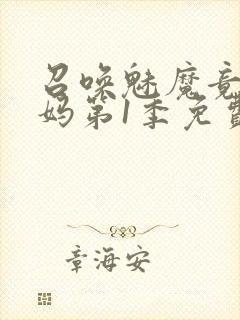 召唤魅魔竟
妈第1季免费
章海安